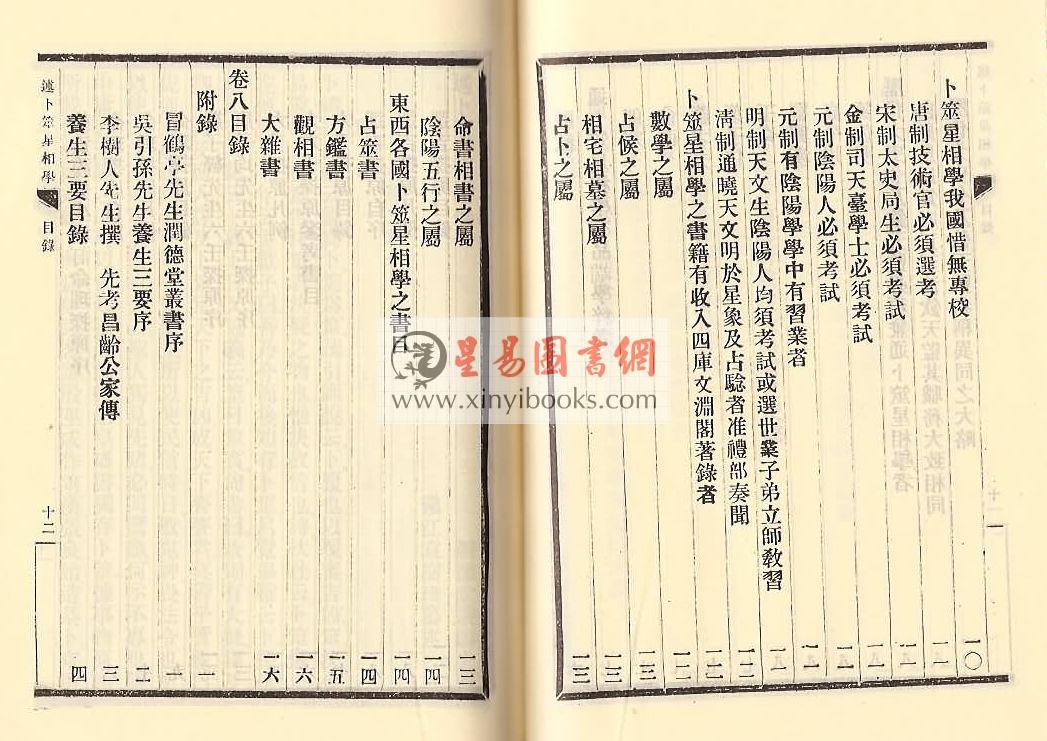 卜筮星相學我國惜無專校 一〇
唐制技術官必須選考 一一
宋制太史局生必須考試 一一
金制司天臺學士必須考試 一一
元制陰陽人必須考試 一一
元制有陰陽學學中有習業者 一一
明制天文生陰陽人均須考試或選世業子弟立師敎習 一二
淸制通曉天文明於星象及占驗者准禮部奏聞 一二
卜筮星相學之書籍有收入四庫文淵閣著錄者 一二
數學之屬 一三
占候之屬 一三
相宅相墓之屬 一三
占卜之屬 一三
命書相書之屬 一三
陰陽五行之屬 一四
東西各國卜筮星相學之書目 一四
占筮書 一四
方鑑書 一五
觀相書 一六
大雜書 一六
卷八目錄
附錄 一
冒鶴亭先生潤德堂叢書序 一
吳引孫先生養生三要序 二
李樹人先生撰 先考昌齡公家傳 三
養生三要目錄 四
述卜筮星相學 目錄 十二
星易圖書網
www.xinyibooks.com